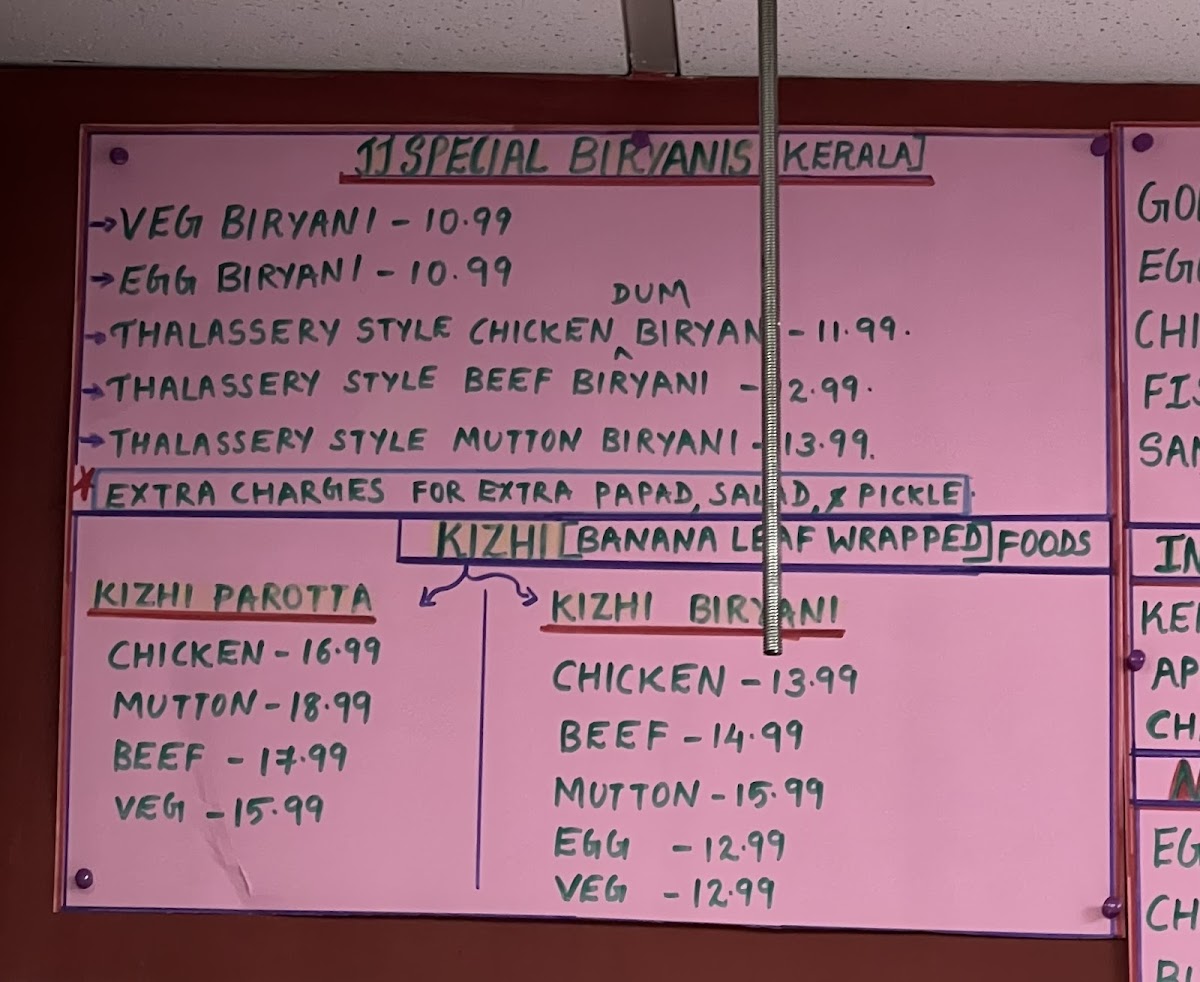 JJ SPECIAL BIRYANIS [KERALA]
→ VEG BIRYANI - 10.99
→ EGG BIRYANI - 10.99
→ THALASSERY STYLE CHICKEN DUM BIRYANI - 11.99.
→ THALASSERY STYLE BEEF BIRYANI - 12.99.
→ THALASSERY STYLE MUTTON BIRYANI - 13.99.
* EXTRA CHARGES FOR EXTRA PAPAD, SALAD, & PICKLE.
KIZHI [BANANA LEAF WRAPPED] FOODS
KIZHI PAROTTA
CHICKEN - 16.99
MUTTON - 18.99
BEEF - 17.99
VEG - 15.99
KIZHI BIRYANI
CHICKEN - 13.99
BEEF - 14.99
MUTTON - 15.99
EGG - 12.99
VEG - 12.99